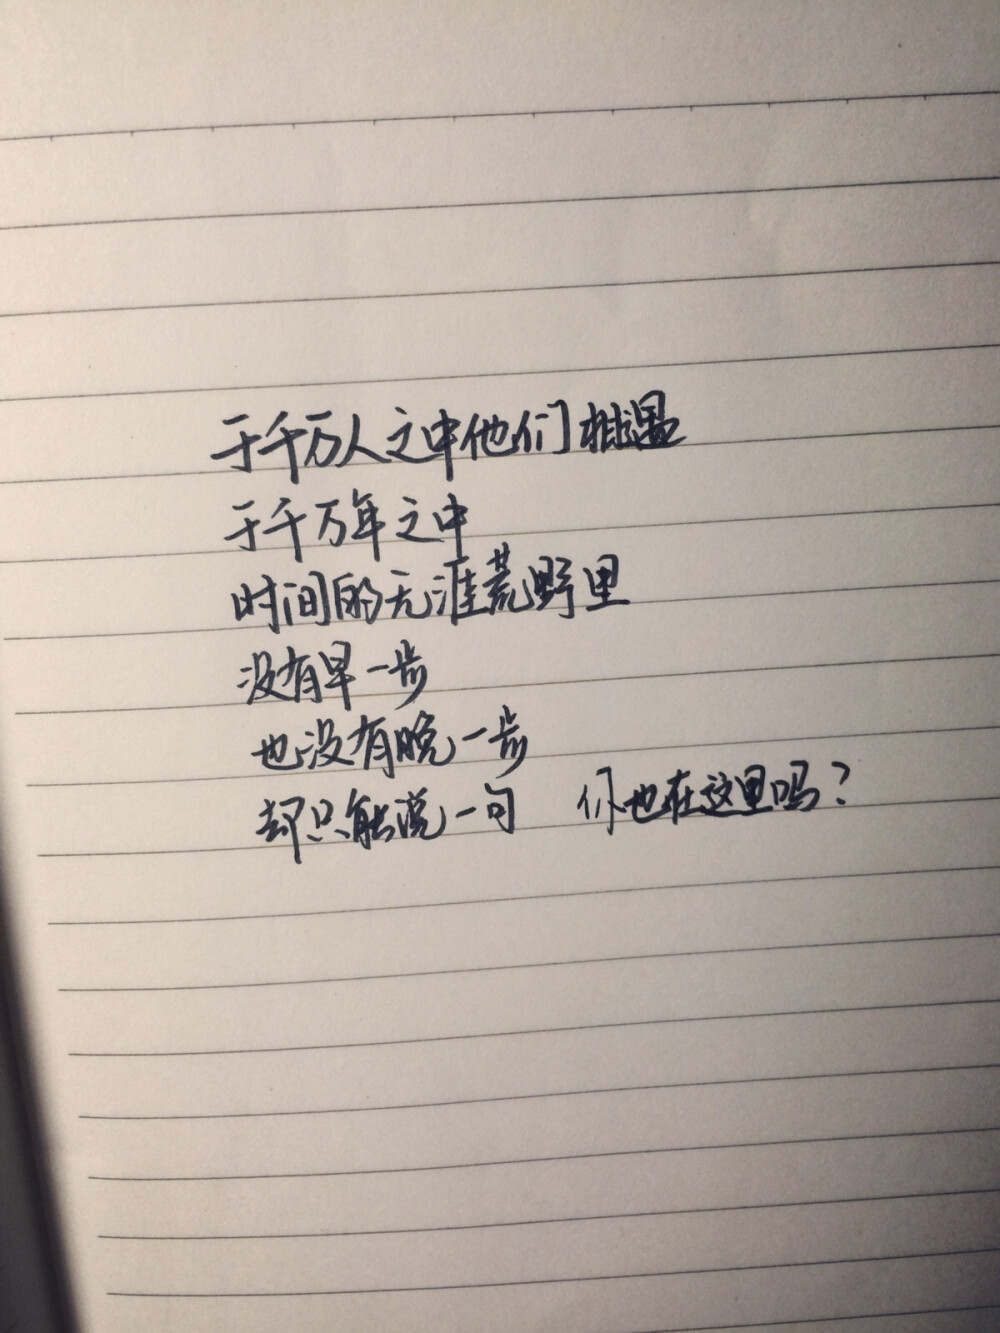 于千万人之中他们相遇
于千万年之中
时间的无涯荒野里
没有早一步
也没有晚一步
却只能说一句 你也在这里吗?